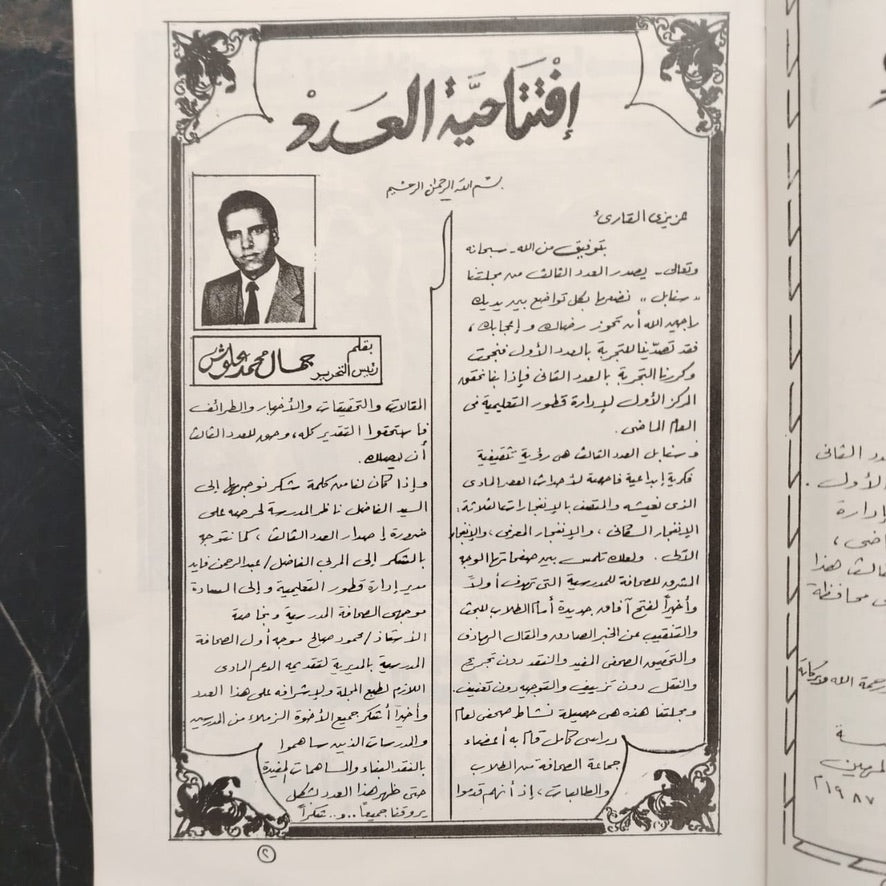 إفتتاحية العدد
بسم الله الرحمن الرحيم
عزيزى القارئ
بتوفيق من الله سبحانه
وتعالى - يصدر العدد الثالث من مجلتنا
" سنابل " نضعها بكل تواضع بين يديك
راجين الله أن تحوز رضاك وإعجابك ،
فقد تصدينا للتجربة بالعدد الأول فنجحت
وكررنا التجربة بالعدد الثانى فإذا بنا نحقق
المركز الأول لإدارة قطور التعليمية فى
العام الماضى .
وسنابل العدد الثالث هى رؤية تثقيفية
فكرية إبداعية فاحصة لأحداث العصر المادى
الذى نعيشه والمتصف بالإنفجارات الثلاثة :
الإنفجار السكانى ، والإنفجار المعرفى ، والإنفجار
الآلى . ولعلك تلمس بين صفحاتها الوجه
المشرق للصحافة المدرسية التى تهدف أولاً
وأخيراً لفتح آفاق جديدة أمام الطلاب للبحث
والتنقيب عن الخبر الصادق والمقال الهادف
والتحقيق الصحفى المفيد والنقد دون تجريح
والنقل دون تزييف والتوجيه دون تعنيف .
ومجلتنا هذه هى حصيلة نشاط صحفى لعام
دراسى كامل قام به أعضاء
جماعة الصحافة من الطلاب
والطالبات ، إذ أنهم قدموا
بقلم
جمال محمد علوش
رئيس التحرير
المقالات والتحقيقات والأخبار والطرائف
فاستحقوا التقدير كله ، وحق للعدد الثالث
أن يصلك .
وإذا كان لنا من كلمة شكر نوجهها إلى
السيد الفاضل ناظر المدرسة لحرصه على
ضرورة إصدار العدد الثالث ، كما نتوجه
بالشكر إلى المربى الفاضل / عبد الرحمن فايد
مدير إدارة قطور التعليمية وإلى السادة
موجهى الصحافة المدرسية وبخاصة
الأستاذ / محمود صالح موجه أول الصحافة
المدرسية بالمديرية لتقديمه الدعم المادى
اللازم لطبع المجلة ولإشرافه على هذا العدد
وأخيراً أشكر جميع الأخوة الزملاء من المدرسين
والمدرسات الذين ساهموا
بالنقد البناء والمساهمات المفيدة
حتى ظهر هذا العدد بشكل
يروقنا جميعاً .. و .. شكراً
٢
دد الثانى
الأول .
إدارة
اضى ،
الث هذا
محافظة
رحمة الله وبركاته
سة
٢١٩٨٧